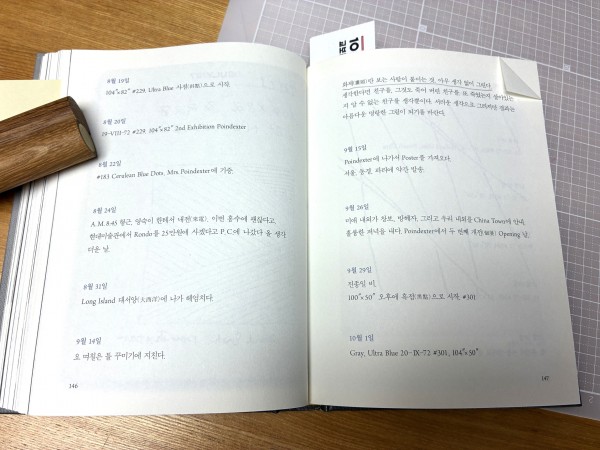 8월 19일
104"×82" #229, Ultra Blue 사점(四點)으로 시작.
8월 20일
19-VIII-72 #229, 104"×82" 2nd Exhibition Poindexter
8월 22일
#183 Cerulean Blue Dots, Mrs. Poindexter에 가증.
8월 24일
A.M.8:45 형근, 영숙이 한테서 내전(來電), 이번 홍수에 괜찮다고,
현대미술관에서 Rondo를 25만원에 사겠다고 P, C에 나갔다 올 생각
더운 날.
8월 31일
Long Island 대서양(大西洋)에 나가 헤엄치다.
9월 14일
요 며칠은 틀 꾸미기에 지친다.
146
10
화제(畫題)란 보는 사람이 붙이는 것. 아무 생각 없이 그린다.
생각한다면 친구들, 그것도 죽어 버린 친구들, 또 죽었는지 살아있는
지 알 수 없는 친구들 생각뿐이다. 서러운 생각으로 그리지만 결과는
아름다운 명랑한 그림이 되기를 바란다.
9월 15일
Poindexter에 나가서 Poster를 가져오다.
서울, 동경, 파리에 약간 발송.
9월 26일
미대 내외가 상포, 방혜자, 그리고 우리 내외를 China Town에 안내,
흥륭한 저녁을 내다. Poindexter에서 두 번째 개전(個展) Opening 날.
9월 29일
진종일 비.
100"×50" 오후에 흑점(黑點)으로 시작. #301
10월 1일
Gray, Ultra Blue 20-IX-72 #301, 104"×50"
147